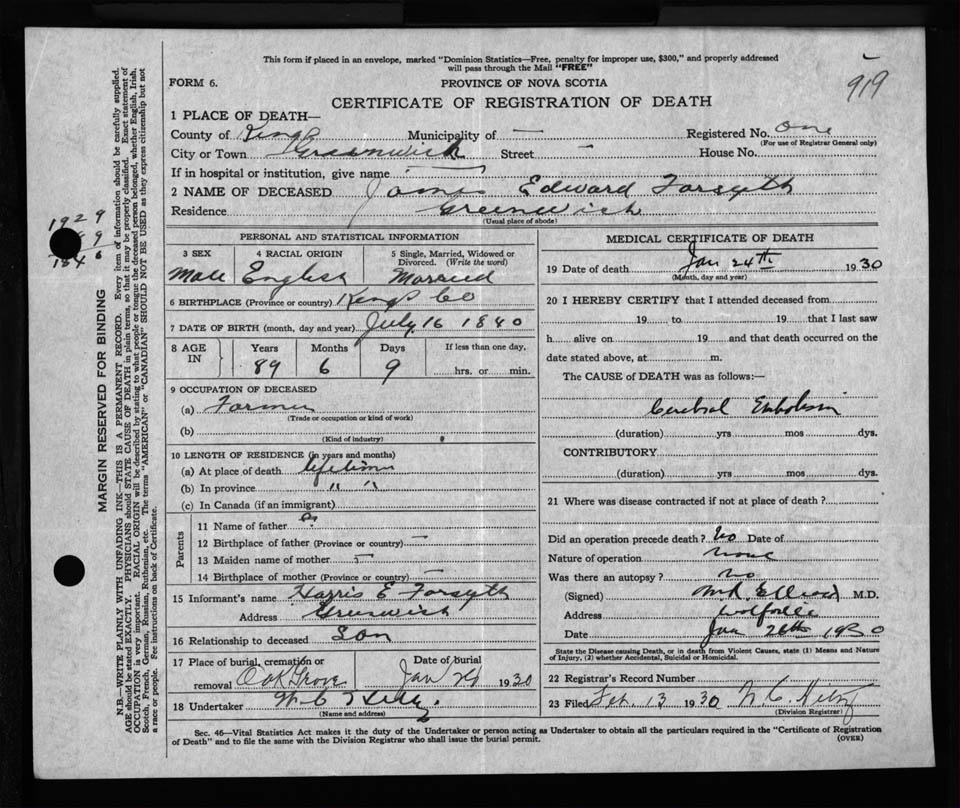 This form if placed in an envelope, marked "Dominion Statistics—Free, penalty for improper use, $300," and properly addressed
will pass through the Mail "FREE"
919
FORM 6.
PROVINCE OF NOVA SCOTIA
CERTIFICATE OF REGISTRATION OF DEATH
1 PLACE OF DEATH—
County of Kings Municipality of — Registered No. one
(For use of Registrar General only)
City or Town Greenwich Street — House No.
If in hospital or institution, give name —
2 NAME OF DECEASED James Edward Forsyth
Residence Greenwich
(Usual place of abode)
PERSONAL AND STATISTICAL INFORMATION
3 SEX 4 RACIAL ORIGIN 5 Single, Married, Widowed or
Divorced. (Write the word)
Male English Married
6 BIRTHPLACE (Province or country) Kings Co
7 DATE OF BIRTH (month, day and year) July 16 1840
8 AGE IN Years Months Days If less than one day,
89 6 9 hrs. or min.
9 OCCUPATION OF DECEASED
(a) Farmer
(Trade or occupation or kind of work)
(b)
(Kind of industry)
10 LENGTH OF RESIDENCE (in years and months)
(a) At place of death lifetime
(b) In province " "
(c) In Canada (if an immigrant)
Parents
11 Name of father ?
12 Birthplace of father (Province or country) —
13 Maiden name of mother
14 Birthplace of mother (Province or country) —
15 Informant's name Harris E Forsyth
Address Greenwich
16 Relationship to deceased Son
17 Place of burial, cremation or Date of burial
removal Oak Grove Jan 26 1930
18 Undertaker W C
(Name and address)
MEDICAL CERTIFICATE OF DEATH
19 Date of death Jan 24th 1930
(Month, day and year)
20 I HEREBY CERTIFY that I attended deceased from
19 to 19 that I last saw
h alive on 19 and that death occurred on the
date stated above, at m.
The CAUSE of DEATH was as follows:—
Cerebral Embolism
(duration) yrs mos dys.
CONTRIBUTORY
(duration) yrs mos dys.
21 Where was disease contracted if not at place of death?
Did an operation precede death? No Date of
Nature of operation none
Was there an autopsy? no
(Signed) M.R. Elliott M.D.
Address Wolfville
Date Jan 26th 1930
State the Disease causing Death, or in death from Violent Causes, state (1) Means and Nature
of Injury, (2) whether Accidental, Suicidal or Homicidal.
22 Registrar's Record Number
23 Filed Feb. 13 1930
(Division Registrar)
Sec. 46—Vital Statistics Act makes it the duty of the Undertaker or person acting as Undertaker to obtain all the particulars required in the "Certificate of Registration
of Death" and to file the same with the Division Registrar who shall issue the burial permit.
(OVER)
MARGIN RESERVED FOR BINDING
N.B.—WRITE PLAINLY WITH UNFADING INK—THIS IS A PERMANENT RECORD. Every item of information should be carefully supplied.
AGE should be stated EXACTLY. PHYSICIANS should STATE CAUSE OF DEATH in plain terms, so that it may be properly classified. Exact statement of
OCCUPATION is very important. RACIAL ORIGIN will be described by stating to what people or tongue the deceased person belonged, whether English, Irish,
Scotch, French, German, Russian, Ruthenian, etc. The terms "AMERICAN" or "CANADIAN" SHOULD NOT BE USED as they express citizenship but not
a race or people. Fee instructions on back of Certificate.
1929